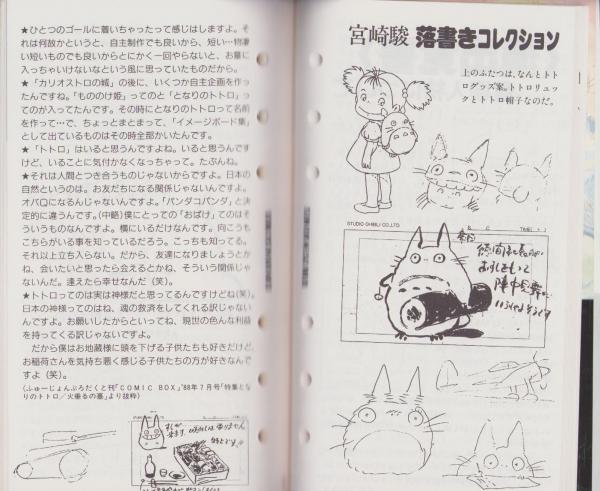 ★ひとつのゴールに着いちゃったって感じはしますよ。そ
れは何故かというと、自主制作でも良いから、短い…物凄
い短いものでも良いからとにかく一回やらないと、お墓に
入っちゃいけないなという風に思っていたものだから。
★「カリオストロの城」の後に、いくつか自主企画を作っ
たんですね。「もののけ姫」ってのと「となりのトトロ」っ
てのが入ってたんです。その時にとなりのトトロって名前
を作って…で、ちょっとまとまって、「イメージボード集」
として出ているものはその時全部かいたんです。
★「トトロ」はいると思うんですよね。いると思うんです
けど、いることに気付かなくなっちゃって。たぶんね。
★それは人間とつき合うものじゃないからですよ。日本の
自然というのは。お友だちになる関係じゃないんですよ。
オバQになるんじゃないんですよ。「パンダコパンダ」と決
定的に違うんです。(中略)僕にとっての「おばけ」てのはそ
ういうものなんですよ。横にいるだけなんです。向こうも
こちらがいる事を知っているだろう。こっちも知ってる。
それ以上立ち入らない。だから、友達になりましょうとか
ね、会いたいと思ったら会えるとかね、そういう関係じゃ
ないんだ。逢えたら幸せなんだ(笑)。
★トトロってのは実は神様だと思ってるんですけどね(笑)。
日本の神様ってのはね、魂の救済をしてくれる訳じゃない
んですよ。お願いしたからといってね、現世の色んな利益
を持ってくる訳じゃないですよ。
だから僕はお地蔵様に頭を下げる子供たちも好きだけど、
お稲荷さんを気持ち悪く感じる子供たちの方が好きなんで
すよ(笑)。
(ふゅーじょんぷろだくと刊「COMIC BOX」'88年7月号「特集とな
りのトトロ/火垂るの墓」より抜粋)
宮崎駿 落書きコレクション
上のふたつは、なんとトト
ログッズ案。トトロリュッ
クとトトロ帽子なのだ。
STUDIO GHIBLI CO.,LTD